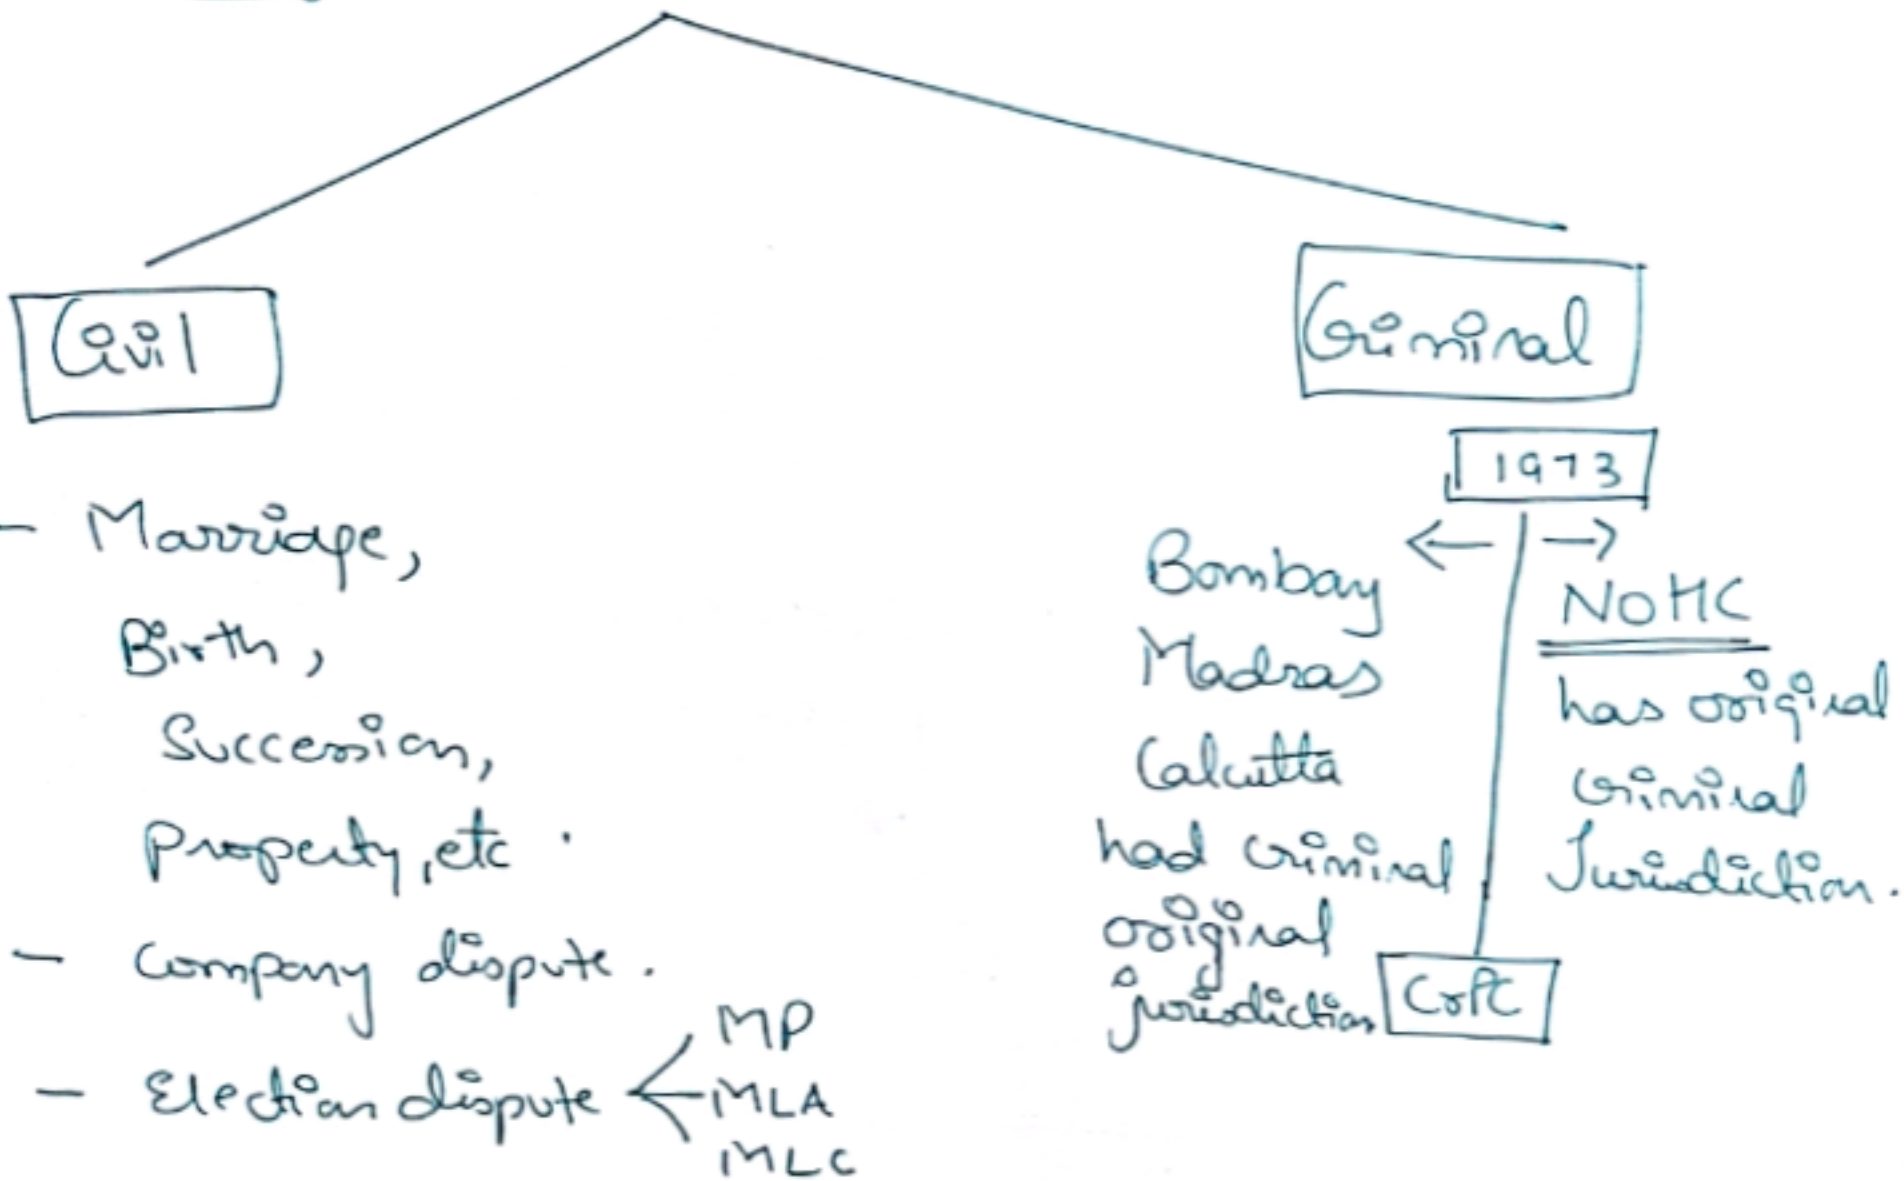 Civil
- Marriage,
Birth,
Succession,
Property, etc.
- Company dispute.
- Election dispute
MP
MLA
MLC
Criminal
1973
← →
Bombay
Madras
Calcutta
had criminal
original
jurisdiction
NO HC
has original
criminal
Jurisdiction.
CrPC